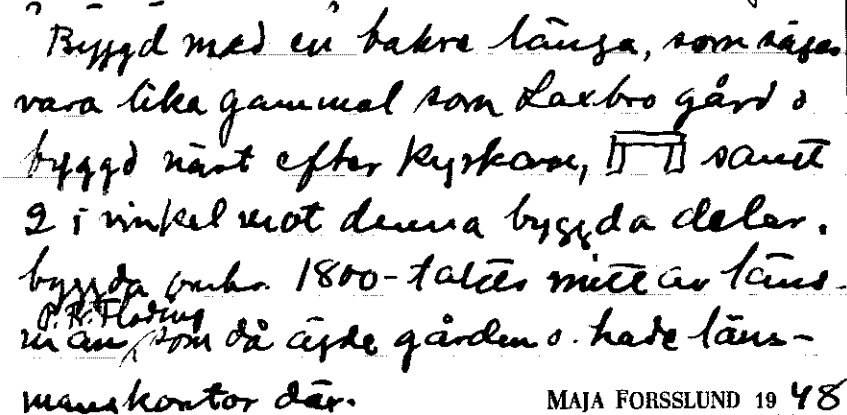 Byggd med en bakre länga, som säges
vara lika gammal som Laxbro gård o
byggd näst efter kyrkan, samt
2 i vinkel mot denna byggda delar.
byggda omkr. 1800-talets mitt av läns-
P. R. Floding
man, som då ägde gården o. hade läns-
manskontor där.
MAJA FORSSLUND 1948